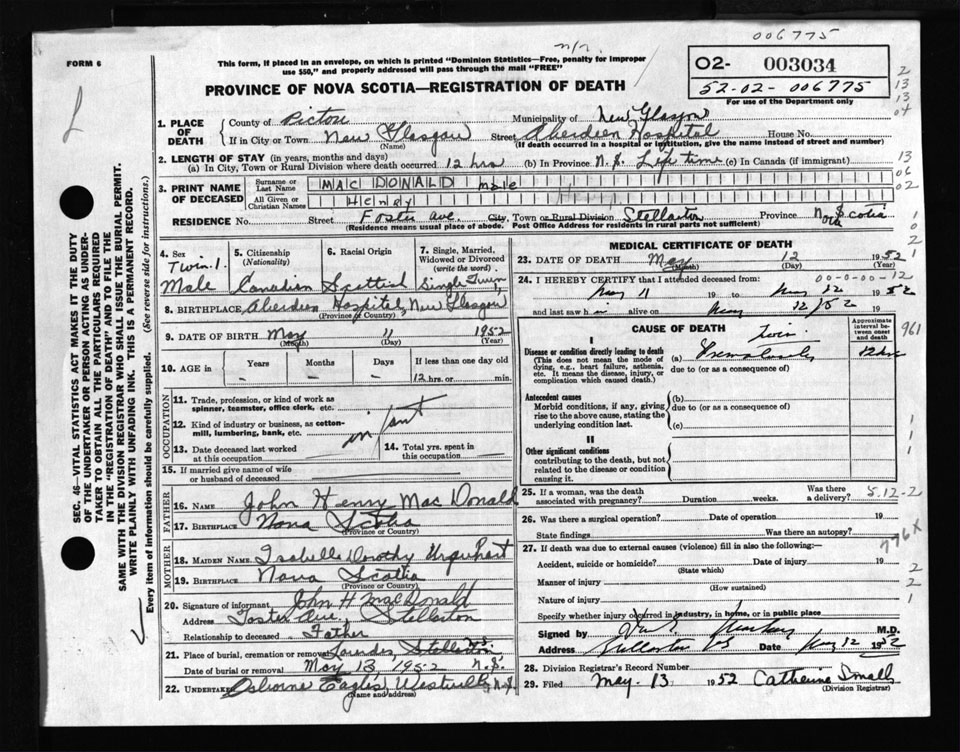 006775
n/r.
FORM 6
This form, if placed in an envelope, on which is printed "Dominion Statistics—Free, penalty for improper
use $50," and properly addressed will pass through the mail "FREE"
O2- 003034
52-02-006775
For use of the Department only
PROVINCE OF NOVA SCOTIA—REGISTRATION OF DEATH
2
13
13
04
1. PLACE OF DEATH
County of Pictou Municipality of New Glasgow
If in City or Town New Glasgow (Name) Street Aberdeen Hospital House No.
(If death occurred in a hospital or institution, give the name instead of street and number)
2. LENGTH OF STAY (in years, months and days)
(a) In City, Town or Rural Division where death occurred 12 hrs (b) In Province N.S. Life time (c) In Canada (if immigrant)
13
06
02
3. PRINT NAME OF DECEASED
Surname or Last Name MAC DONALD male
All Given or Christian Names Henry
RESIDENCE No. Street Foster Ave. City, Town or Rural Division Stellarton Province Nova Scotia
(Residence means usual place of abode. Post Office Address for residents in rural parts not sufficient)
1
0
2
4. Sex Twin 1. Male
5. Citizenship (Nationality) Canadian
6. Racial Origin Scottish
7. Single, Married, Widowed or Divorced (write the word). Single Twin 1
8. BIRTHPLACE Aberdeen Hospital, New Glasgow
(Province or Country)
9. DATE OF BIRTH May 11 1952
(Month) (Day) (Year)
10. AGE in Years - Months - Days - If less than one day old 12 hrs. or min.
OCCUPATION
11. Trade, profession, or kind of work as spinner, teamster, office clerk, etc.
12. Kind of industry or business, as cotton-mill, lumbering, bank, etc.
infant
13. Date deceased last worked at this occupation
14. Total yrs. spent in this occupation
15. If married give name of wife or husband of deceased
FATHER
16. NAME John Henry Mac Donald
17. BIRTHPLACE Nova Scotia
(Province or Country)
MOTHER
18. MAIDEN NAME Isabelle Dorothy Urquhart
19. BIRTHPLACE Nova Scotia
(Province or Country)
20. Signature of informant John H MacDonald
Address Foster Ave., Stellarton
Relationship to deceased Father
21. Place of burial, cremation or removal Lourdes, Stellarton
Date of burial or removal May 13, 1952 N.S.
22. UNDERTAKER Osborne Eagles, Westville, N.S.
(Name and address)
MEDICAL CERTIFICATE OF DEATH
23. DATE OF DEATH May 12 1952
(Month) (Day) (Year)
24. I HEREBY CERTIFY that I attended deceased from: 00-0-00-12
May 11 19 to May 12 1952
and last saw h m alive on May 12/52 19
CAUSE OF DEATH
Approximate interval between onset and death
961
I
Disease or condition directly leading to death
(This does not mean the mode of dying, e.g., heart failure, asthenia, etc. It means the disease, injury, or complication which caused death.)
(a) Prematurity twin 12 hrs
due to (or as a consequence of)
Antecedent causes
Morbid conditions, if any, giving rise to the above cause, stating the underlying condition last.
(b)
due to (or as a consequence of)
(c)
1
1
II
Other significant conditions
contributing to the death, but not related to the disease or condition causing it.
1
25. If a woman, was the death associated with pregnancy? Duration weeks. Was there a delivery?
5.12-2
26. Was there a surgical operation? Date of operation 19
State findings Was there an autopsy?
776X
27. If death was due to external causes (violence) fill in also the following:—
Accident, suicide or homicide? Date of injury 19
(State which)
Manner of injury
(How sustained)
Nature of injury
Specify whether injury occurred in industry, in home, or in public place
2
2
1
Signed by M.D.
Address Stellarton NS Date May 12 1952
28. Division Registrar's Record Number
29. Filed May. 13 1952 Catherine Small
(Division Registrar)
SEC. 46—VITAL STATISTICS ACT MAKES IT THE DUTY
OF THE UNDERTAKER OR PERSON ACTING AS UNDER-
TAKER TO OBTAIN ALL THE PARTICULARS REQUIRED
IN THE "REGISTRATION OF DEATH" AND TO FILE THE
SAME WITH THE DIVISION REGISTRAR WHO SHALL ISSUE THE BURIAL PERMIT.
WRITE PLAINLY WITH UNFADING INK. THIS IS A PERMANENT RECORD.
Every item of information should be carefully supplied. (See reverse side for instructions.)